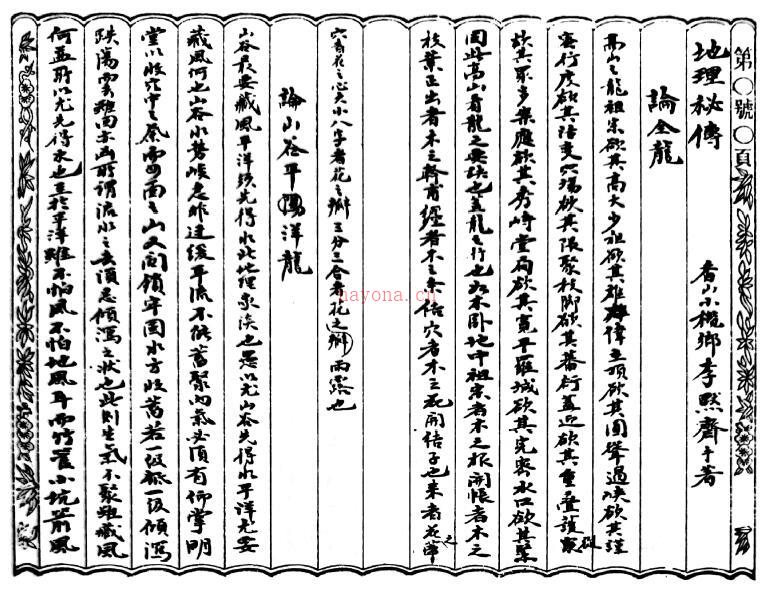 第〇號〇頁
地理秘傳 香山小欖鄉李默齋手著
論全龍
高山之龍祖宗欲其高大少祖欲其雄偉立頂欲其圓聳過峽欲其謹
密行度欲其活變穴場欲其限聚枝脚欲其蕃衍蓋迎欲其重叠護
砂欲其眾多案應欲其秀崎堂局欲其寬平羅城欲其完密水口欲其緊
固此高山看龍之要訣也蓋龍之行也如木卧地中祖宗者木之根開帳者木之
枝葉正出者木之幹旁經者木之条結穴者木之花開結子也来者花之蒂
穴者花之心大小八字者花之瓣三分三合者花之瓣雨露也
論山谷平陽洋龍
山谷最要藏風平洋須先得水此地理家淡也愚以尤山谷先得水平洋尤要
藏風何也山谷水勢峻急非建緩平流不能蓄聚內氣必須有仰掌明
堂以收穴中之氣需面之山又關鎖牢固水方收蓄若一级一级傾瀉
跌蕩雲難向亦凶所謂流水之去須忌傾瀉之狀也此則生氣不聚雖藏風
何益所以尤先得水也至於平洋雖不怕風不怕地風耳而竹篙小坑箭風
hayona.cn